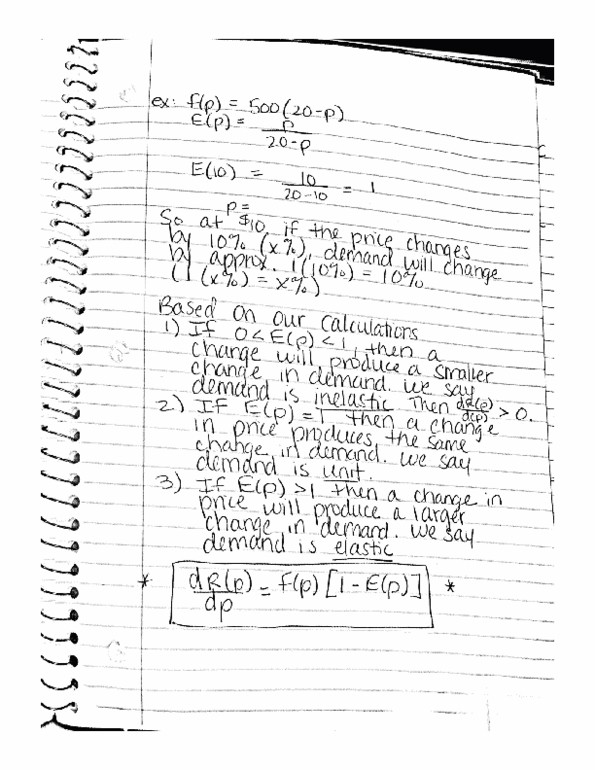 ex: f(p) = 500(20-p)
E(p) = p/20-p
E(10) = 10/20-10 = 1
p=
So at $10, if the price changes
by 10% (x%), demand will change
by approx. 1(10%) = 10%
(1(x%) = x%)
Based on our calculations
1) If 0<E(p)<1, then a
change will produce a smaller
change in demand. We say
demand is inelastic Then dR(p)/d(p) > 0.
2) If E(p)=1 then a change
in price produces the same
change in demand. We say
demand is unit.
3) If E(p) >1 then a change in
price will produce a larger
change in demand. We say
demand is elastic
* dR(p)/dp = f(p) [1-E(p)] *